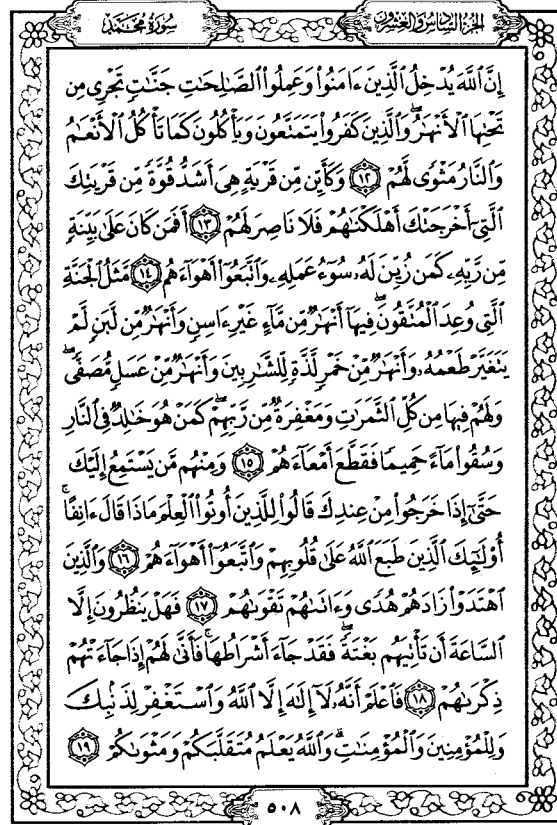 سُورَةُ مُحَمَّد
الجزء السادس والعشرون
إِنَّ ٱللَّهَ يُدۡخِلُ ٱلَّذِينَ ءَامَنُواْ وَعَمِلُواْ ٱلصَّٰلِحَٰتِ جَنَّٰتٖ تَجۡرِي مِن
تَحۡتِهَا ٱلۡأَنۡهَٰرُۖ وَٱلَّذِينَ كَفَرُواْ يَتَمَتَّعُونَ وَيَأۡكُلُونَ كَمَا تَأۡكُلُ ٱلۡأَنۡعَٰمُ
وَٱلنَّارُ مَثۡوٗى لَّهُمۡ ١٢ وَكَأَيِّن مِّن قَرۡيَةٍ هِيَ أَشَدُّ قُوَّةٗ مِّن قَرۡيَتِكَ
ٱلَّتِيٓ أَخۡرَجَتۡكَ أَهۡلَكۡنَٰهُمۡ فَلَا نَاصِرَ لَهُمۡ ١٣ أَفَمَن كَانَ عَلَىٰ بَيِّنَةٖ
مِّن رَّبِّهِۦ كَمَن زُيِّنَ لَهُۥ سُوٓءُ عَمَلِهِۦ وَٱتَّبَعُوٓاْ أَهۡوَآءَهُم ١٤ مَّثَلُ ٱلۡجَنَّةِ
ٱلَّتِي وُعِدَ ٱلۡمُتَّقُونَۖ فِيهَآ أَنۡهَٰرٞ مِّن مَّآءٍ غَيۡرِ ءَاسِنٖ وَأَنۡهَٰرٞ مِّن لَّبَنٖ لَّمۡ
يَتَغَيَّرۡ طَعۡمُهُۥ وَأَنۡهَٰرٞ مِّنۡ خَمۡرٖ لَّذَّةٖ لِّلشَّٰرِبِينَ وَأَنۡهَٰرٞ مِّنۡ عَسَلٖ مُّصَفّٗىۖ
وَلَهُمۡ فِيهَا مِن كُلِّ ٱلثَّمَرَٰتِ وَمَغۡفِرَةٞ مِّن رَّبِّهِمۡۖ كَمَنۡ هُوَ خَٰلِدٞ فِي ٱلنَّارِ
وَسُقُواْ مَآءً حَمِيمٗا فَقَطَّعَ أَمۡعَآءَهُمۡ ١٥ وَمِنۡهُم مَّن يَسۡتَمِعُ إِلَيۡكَ
حَتَّىٰٓ إِذَا خَرَجُواْ مِنۡ عِندِكَ قَالُواْ لِلَّذِينَ أُوتُواْ ٱلۡعِلۡمَ مَاذَا قَالَ ءَانِفًاۚ
أُوْلَٰٓئِكَ ٱلَّذِينَ طَبَعَ ٱللَّهُ عَلَىٰ قُلُوبِهِمۡ وَٱتَّبَعُوٓاْ أَهۡوَآءَهُمۡ ١٦ وَٱلَّذِينَ
ٱهۡتَدَوۡاْ زَادَهُمۡ هُدٗى وَءَاتَىٰهُمۡ تَقۡوَىٰهُمۡ ١٧ فَهَلۡ يَنظُرُونَ إِلَّا
ٱلسَّاعَةَ أَن تَأۡتِيَهُم بَغۡتَةٗۖ فَقَدۡ جَآءَ أَشۡرَاطُهَاۚ فَأَنَّىٰ لَهُمۡ إِذَا جَآءَتۡهُمۡ
ذِكۡرَىٰهُمۡ ١٨ فَٱعۡلَمۡ أَنَّهُۥ لَآ إِلَٰهَ إِلَّا ٱللَّهُ وَٱسۡتَغۡفِرۡ لِذَنۢبِكَ
وَلِلۡمُؤۡمِنِينَ وَٱلۡمُؤۡمِنَٰتِۗ وَٱللَّهُ يَعۡلَمُ مُتَقَلَّبَكُمۡ وَمَثۡوَىٰكُمۡ ١٩
٥٠٨